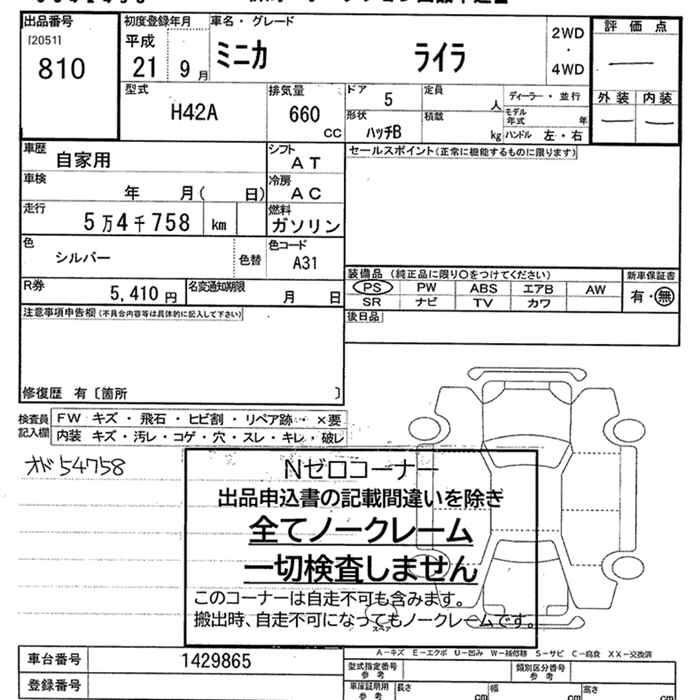 出品番号
[2051]
810
初度登録年月
平成
21 9 月
車名・グレード
ミニカ ライラ
2WD
・
4WD
評価点
外装 内装
型式
H42A
排気量
660
CC
ドア 5
定員
人
ディーラー・並行
形状
ハッチB
積載
kg
モデル年式
年
ハンドル 左・右
車歴
自家用
シフト
AT
セールスポイント(正常に機能するものに限ります)
車検
年 月( 日)
冷房
AC
走行
5万4千758 km
燃料
ガソリン
色
シルバー
色替
色コード
A31
装備品(純正品に限り○をつけてください)
新車保証書
PS PW ABS エアB AW
有・無
SR ナビ TV カワ
R券
5,410 円
名変通知期限
月 日
後日品
注意事項申告欄(不具合内容等は具体的に記入して下さい)
修復歴 有〔箇所 〕
検査員
記入欄
FW キズ・飛石・ヒビ割・リペア跡・×要
内装 キズ・汚レ・コゲ・穴・スレ・キレ・破レ
オド54758
Nゼロコーナー
出品申込書の記載間違いを除き
全てノークレーム
一切検査しません
このコーナーは自走不可も含みます。
搬出時、自走不可になってもノークレームです。
スペア
A−キズ E−エクボ U−凹み W−補修跡 S−サビ C−腐食 XX−交換済
車台番号
1429865
型式指定番号
参考
類別区分番号
参考
登録番号
車庫証明用
参考
長さ
cm
幅
cm
高さ
cm